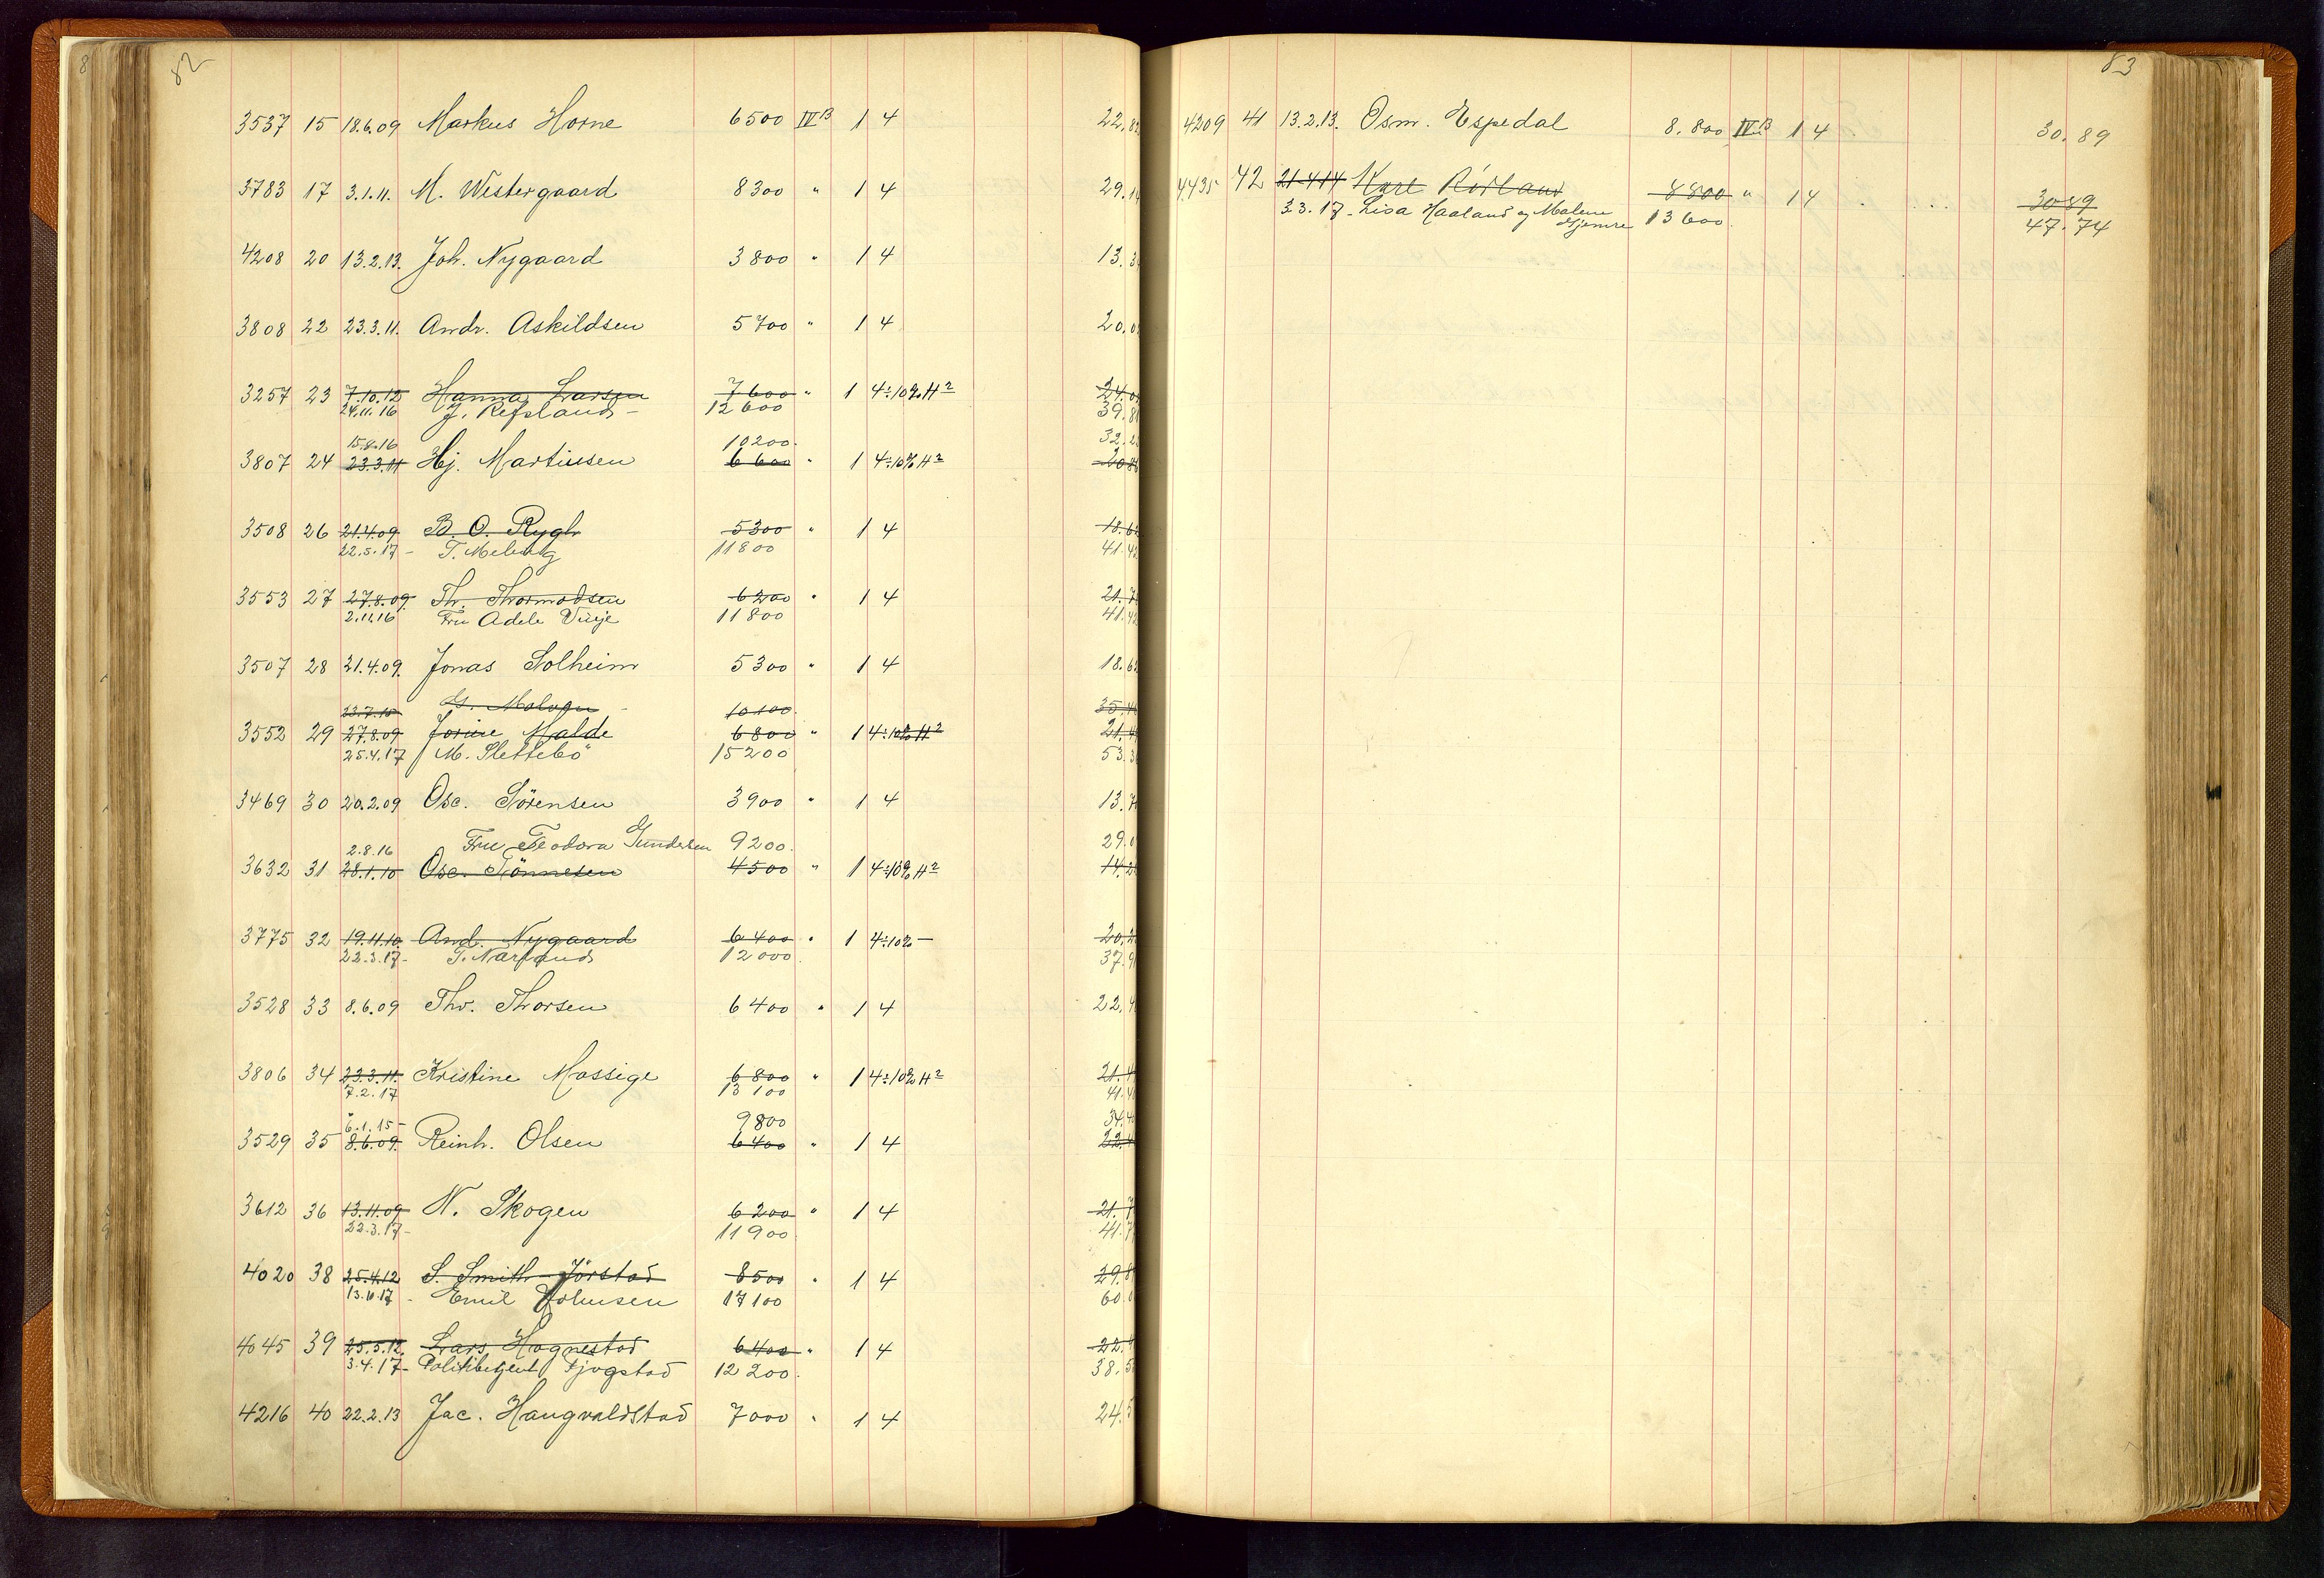 82
3537 15 18.6.09 Markus Horne 6500 IV B 1 4 22.82
3783 17 3.1.11. M. Westergaard 8300 " 1 4 29.14
4208 20 13.2.13. Joh. Nygaard 3800 " 1 4 13.3
3808 22 23.3.11. Andr. Askildsen 5700 " 1 4 20.0
3257 23 7.10.12 Hanna Larsen 7600 " 1 4÷10% H2 24.0
24.11.16 J. Refsland - 12600 39.8
15.8.16 10200. 32.2
3807 24 23.3.11 Hj. Martinsen 6600 " 1 4÷10% H2 20.8
3508 26 21.4.09 B. O. Rygh 5300 " 1 4 18.62
22.5.17 - T. Meling 11800 41.42
3553 27 27.8.09. Th. Thormodsen 6200 " 1 4 21.7
2.11.16 Fru Adele Vinje 11800 41.42
3507 28 21.4.09. Jonas Solheim 5300 " 1 4 18.62
23.7.10 10100. 35.4
3552 29 27.8.09 Malde 6800 " 1 4÷10% H2 21.4
25.4.17 M. Slettebö 15200 53.3
3469 30 20.2.09 Osc. Sörensen 3900 " 1 4 13.7
2.8.16 Fru Teodora Gundersen 9200. 29.0
3632 31 28.1.10 Osc. Tönnesen 4500 " 1 4÷10% H2 14.2
3775 32 19.11.10. And. Nygaard 6400 " 1 4÷10% - 20.2
22.3.17 - T. Nærland 12000. 37.9
3528 33 8.6.09 Thv. Thorsen 6400 " 1 4 22.4
3806 34 23.3.11. Kristine Massige 6800 " 1 4÷10% H2 21.4
7.2.17 13100 41.4
6.1.15 - 9800 34.4
3529 35 8.6.09. Reinh. Olsen 6400 " 1 4 22.4
3612 36 13.11.09 N. Skogen 6200 " 1 4 21.7
22.3.17 - 11900. 41.7
4020 38 25.4.12 S. Smith-Jörstad 8500 " 1 4 29.8
13.10.17 - Emil Johnsen 17100 60.0
4045 39 25.5.12. Lars Hognestad 6400 " 1 4 22.4
3.4.17 - Politibetjent Fjogstad 12200. 38.5
4216 40 22.2.13 Jac. Haugvaldstad 7000 " 1 4 24.5
83
4209 41 13.2.13. Osm. Espedal 8.800 IV B 1 4 30.89
4435 42 21.4.14 Karl Rörland 8800 " 1 4 30.89
3.3.17 - Lisa Haaland og Malene Gjemre 13600. 47.74